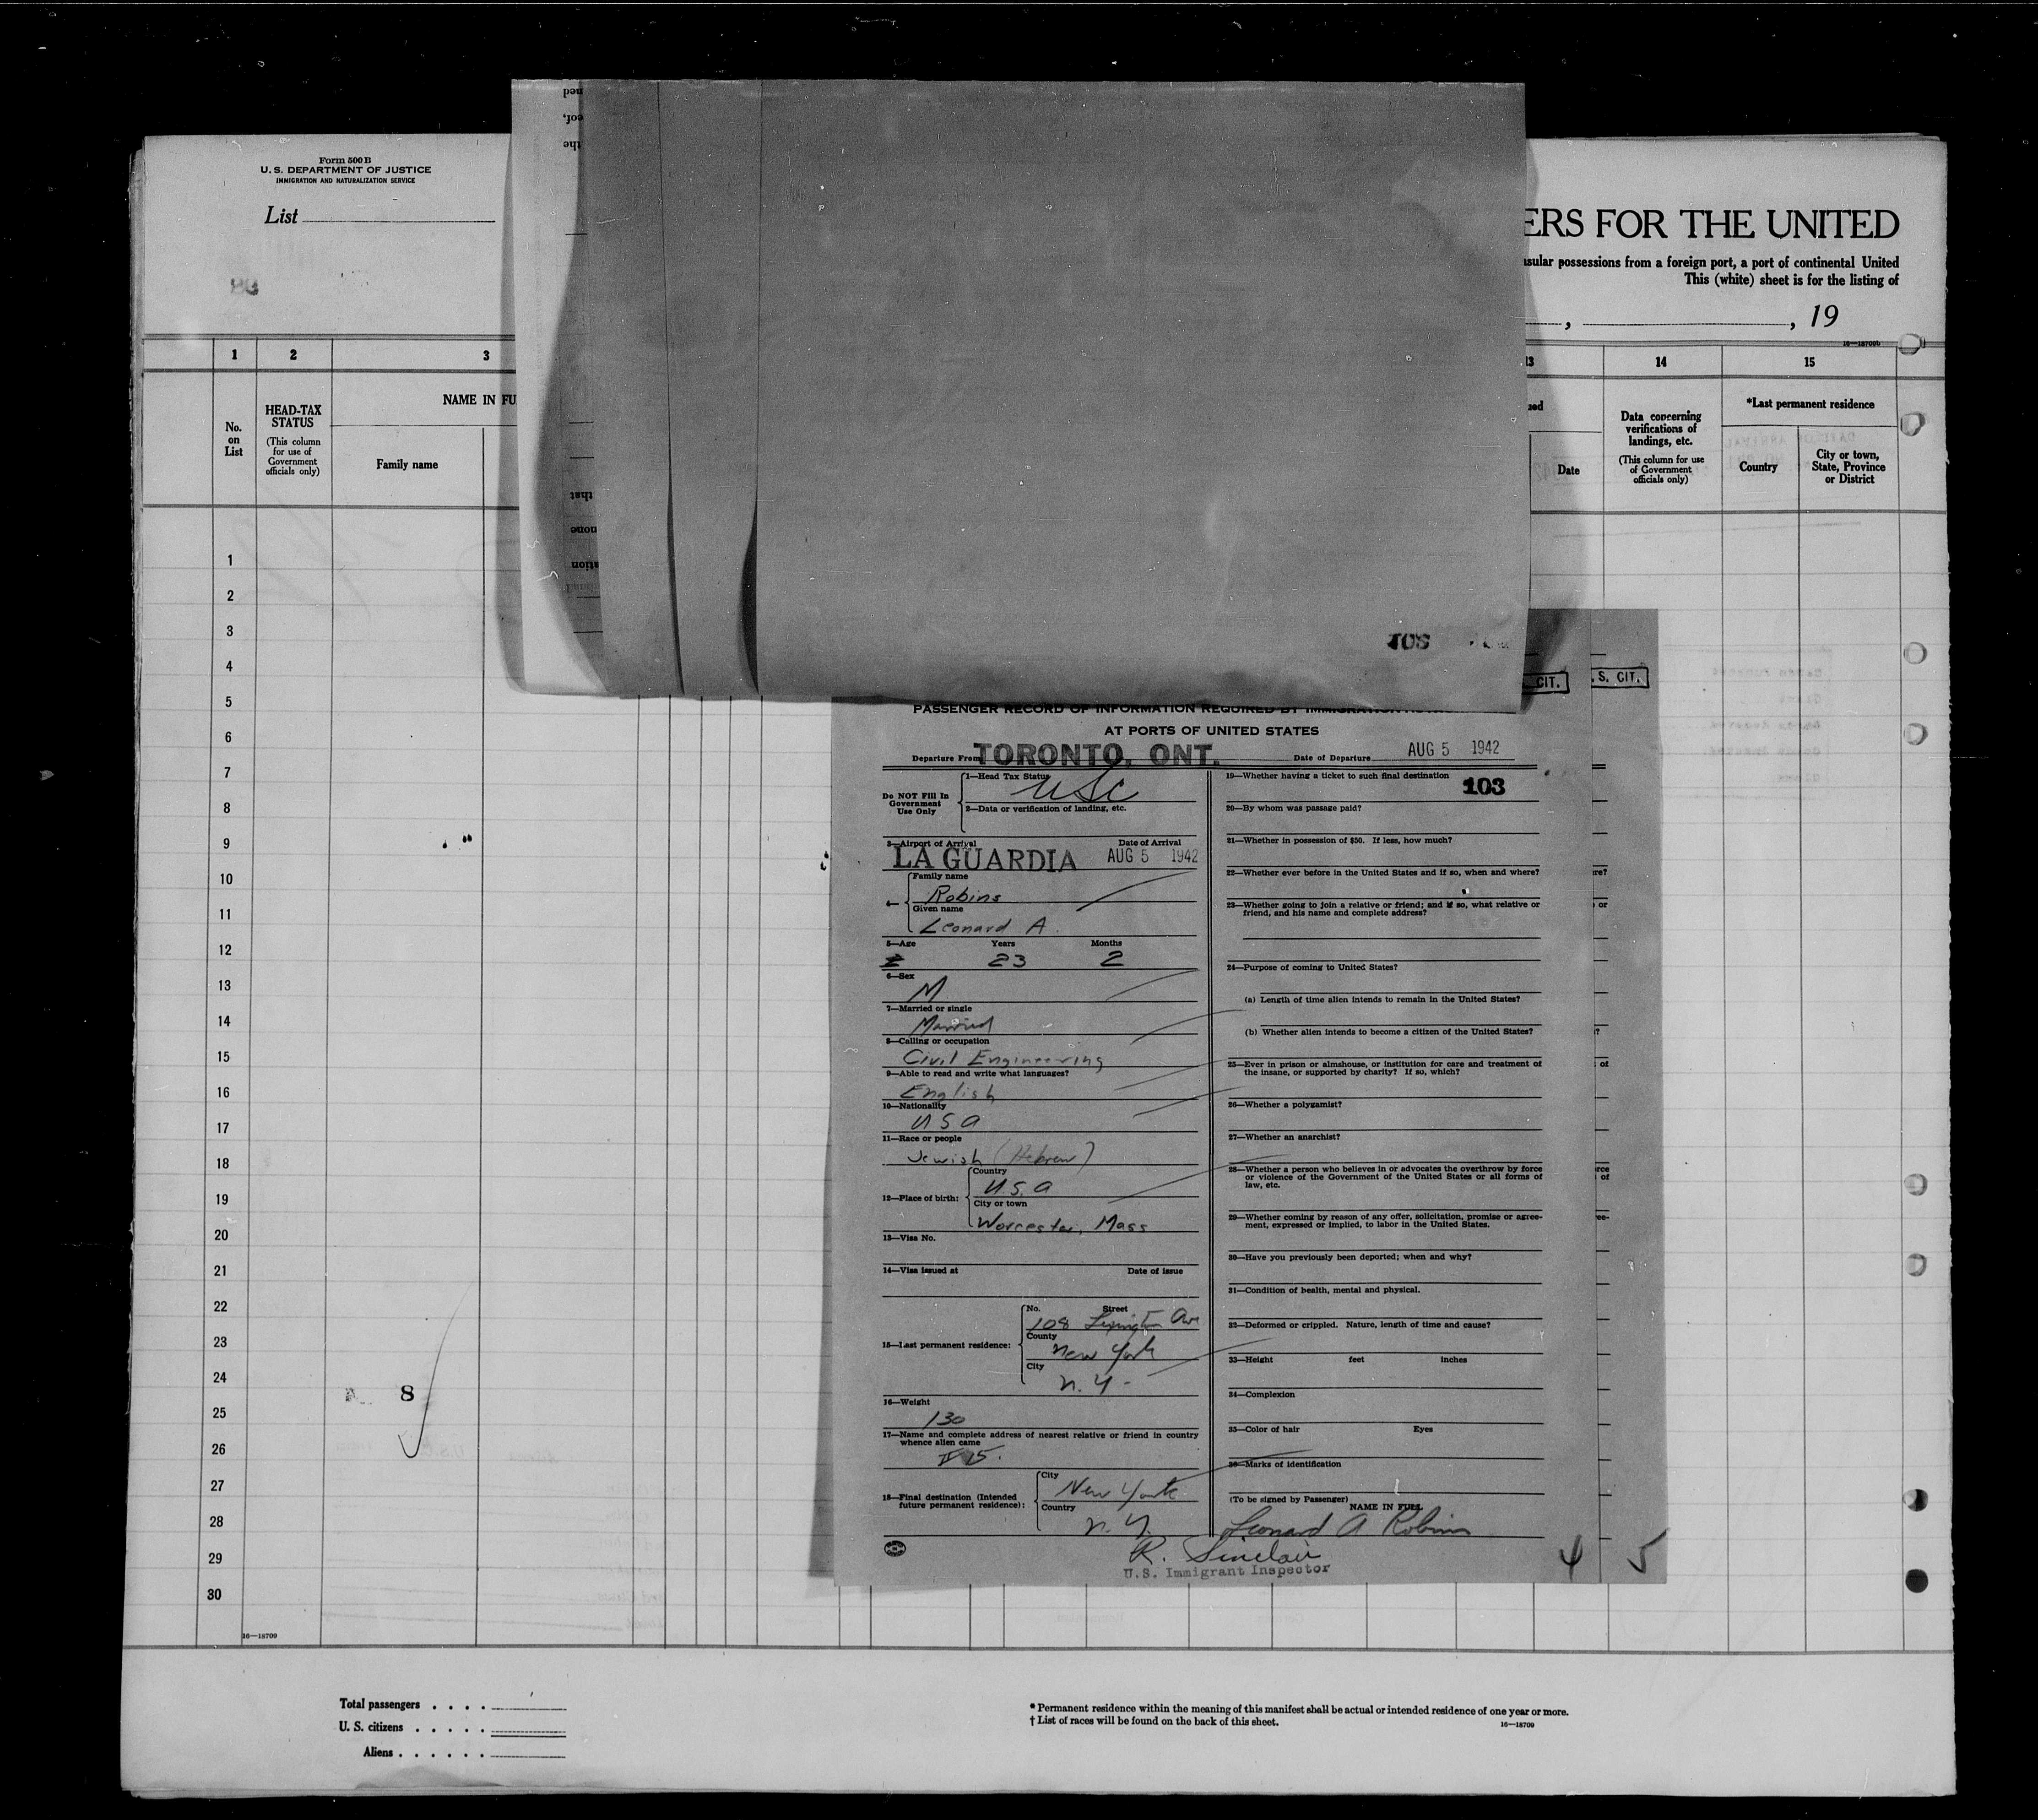 Form 500 B
U. S. DEPARTMENT OF JUSTICE
IMMIGRATION AND NATURALIZATION SERVICE
List
ERS FOR THE UNITED
sular possessions from a foreign port, a port of continental United
This (white) sheet is for the listing of
, , 19
16—18709b
1 2 3 13 14 15
No. on List
HEAD-TAX STATUS
(This column for use of Government officials only)
NAME IN FU
Family name
Date
Data concerning verifications of landings, etc.
(This column for use of Government officials only)
*Last permanent residence
Country
City or town, State, Province or District
1
2
3
4
5
6
7
8
9
10
11
12
13
14
15
16
17
18
19
20
21
22
23
24
25
26
27
28
29
30
8
16—18709
CIT.
. S. CIT.
PASSENGER RECORD OF INFORMATION REQUIRED BY
AT PORTS OF UNITED STATES
Departure From TORONTO, ONT. Date of Departure AUG 5 1942
Do NOT Fill In Government Use Only
1—Head Tax Status
USC
2—Data or verification of landing, etc.
3—Airport of Arrival Date of Arrival
LA GUARDIA AUG 5 1942
4—
Family name
Robins
Given name
Leonard A.
5—Age Years Months
23 2
6—Sex
M
7—Married or single
Married
8—Calling or occupation
Civil Engineering
9—Able to read and write what languages?
English
10—Nationality
USA
11—Race or people
Jewish (Hebrew)
12—Place of birth:
Country
U.S.A
City or town
Worcester, Mass
13—Visa No.
14—Visa issued at Date of issue
15—Last permanent residence:
No. Street
108 Lexington Ave
County
New York
City
N.Y-
16—Weight
130
17—Name and complete address of nearest relative or friend in country whence alien came
18—Final destination (Intended future permanent residence):
City
New York
Country
N.Y.
19—Whether having a ticket to such final destination
103
20—By whom was passage paid?
21—Whether in possession of $50. If less, how much?
22—Whether ever before in the United States and if so, when and where?
23—Whether going to join a relative or friend; and if so, what relative or
friend, and his name and complete address?
24—Purpose of coming to United States?
(a) Length of time alien intends to remain in the United States?
(b) Whether alien intends to become a citizen of the United States?
25—Ever in prison or almshouse, or institution for care and treatment of
the insane, or supported by charity? If so, which?
26—Whether a polygamist?
27—Whether an anarchist?
28—Whether a person who believes in or advocates the overthrow by force
or violence of the Government of the United States or all forms of
law, etc.
29—Whether coming by reason of any offer, solicitation, promise or agree-
ment, expressed or implied, to labor in the United States.
30—Have you previously been deported; when and why?
31—Condition of health, mental and physical.
32—Deformed or crippled. Nature, length of time and cause?
33—Height feet inches
34—Complexion
35—Color of hair Eyes
36—Marks of identification
(To be signed by Passenger)
NAME IN FULL
Leonard A Robins
R. Sinclair
U.S. Immigrant Inspector
4 5
Total passengers . . . .
U. S. citizens . . . . .
Aliens . . . . . .
* Permanent residence within the meaning of this manifest shall be actual or intended residence of one year or more.
† List of races will be found on the back of this sheet.
16—18709